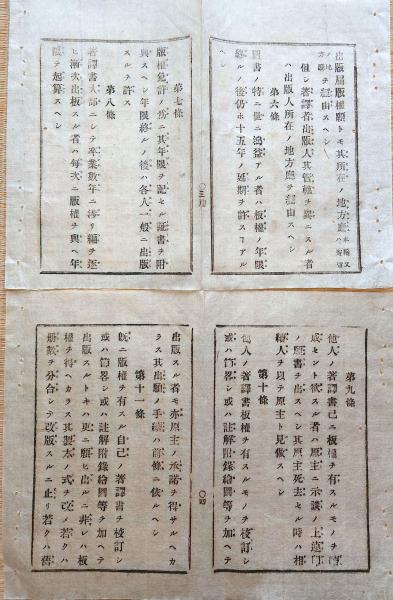 出版屆版權願トモ其所在ノ地方廳
ノ地方廳ヲ經由スヘシ
但シ著譯者出版人其管轄ヲ異ニスル者
ハ出版人所在ノ地方廳ヲ經由スヘシ
第六條
圖書ノ特ニ世ニ鴻益アル者ハ板權ノ年限
終ルノ後仍ホ十五年ノ延期ヲ許スコアル
ヘシ
〇三
第七條
版權免許ノ爲ニ其年限ヲ記セル証書ヲ附
與スヘシ年限終ルノ後ハ各人一般ニ出版
スルヲ許ス
第八條
著譯書大部ニシテ卒業數年ニ涉リ編ヲ逐
ヒ漸次出板スル者ハ每次ニ版權ヲ與ヘ年
限ヲ起算スヘシ
第九條
他人ノ著譯書已ニ板權ヲ有スルモノヲ
成セント欲スル者ハ原主ニ示談ノ上連印
ノ願書ヲ出スヘシ其原主死去セル時ハ相
續人ヲ以テ原主ト見做スヘシ
第十條
他人ノ著譯書板權ヲ有スルモノヲ校訂シ
或ハ節畧シ或ハ註解附錄繪圖等ヲ加ヘテ
〇四
出版スル者モ亦原主ノ承諾ヲ得サルヘカ
ラス其出願ノ手續ハ前條ニ依ルヘシ
第十一條
既ニ版權ヲ有スル自己ノ著譯書ヲ校訂シ
或ハ節畧シ或ハ註解附錄繪圖等ヲ加ヘテ
出版スルトキハ更ニ願ヒ出ルニ非レハ板
權ヲ得ヘカラス其製本ノ式ヲ改メ若クハ
册數ヲ分合シテ改版スルニ止リ若クハ舊